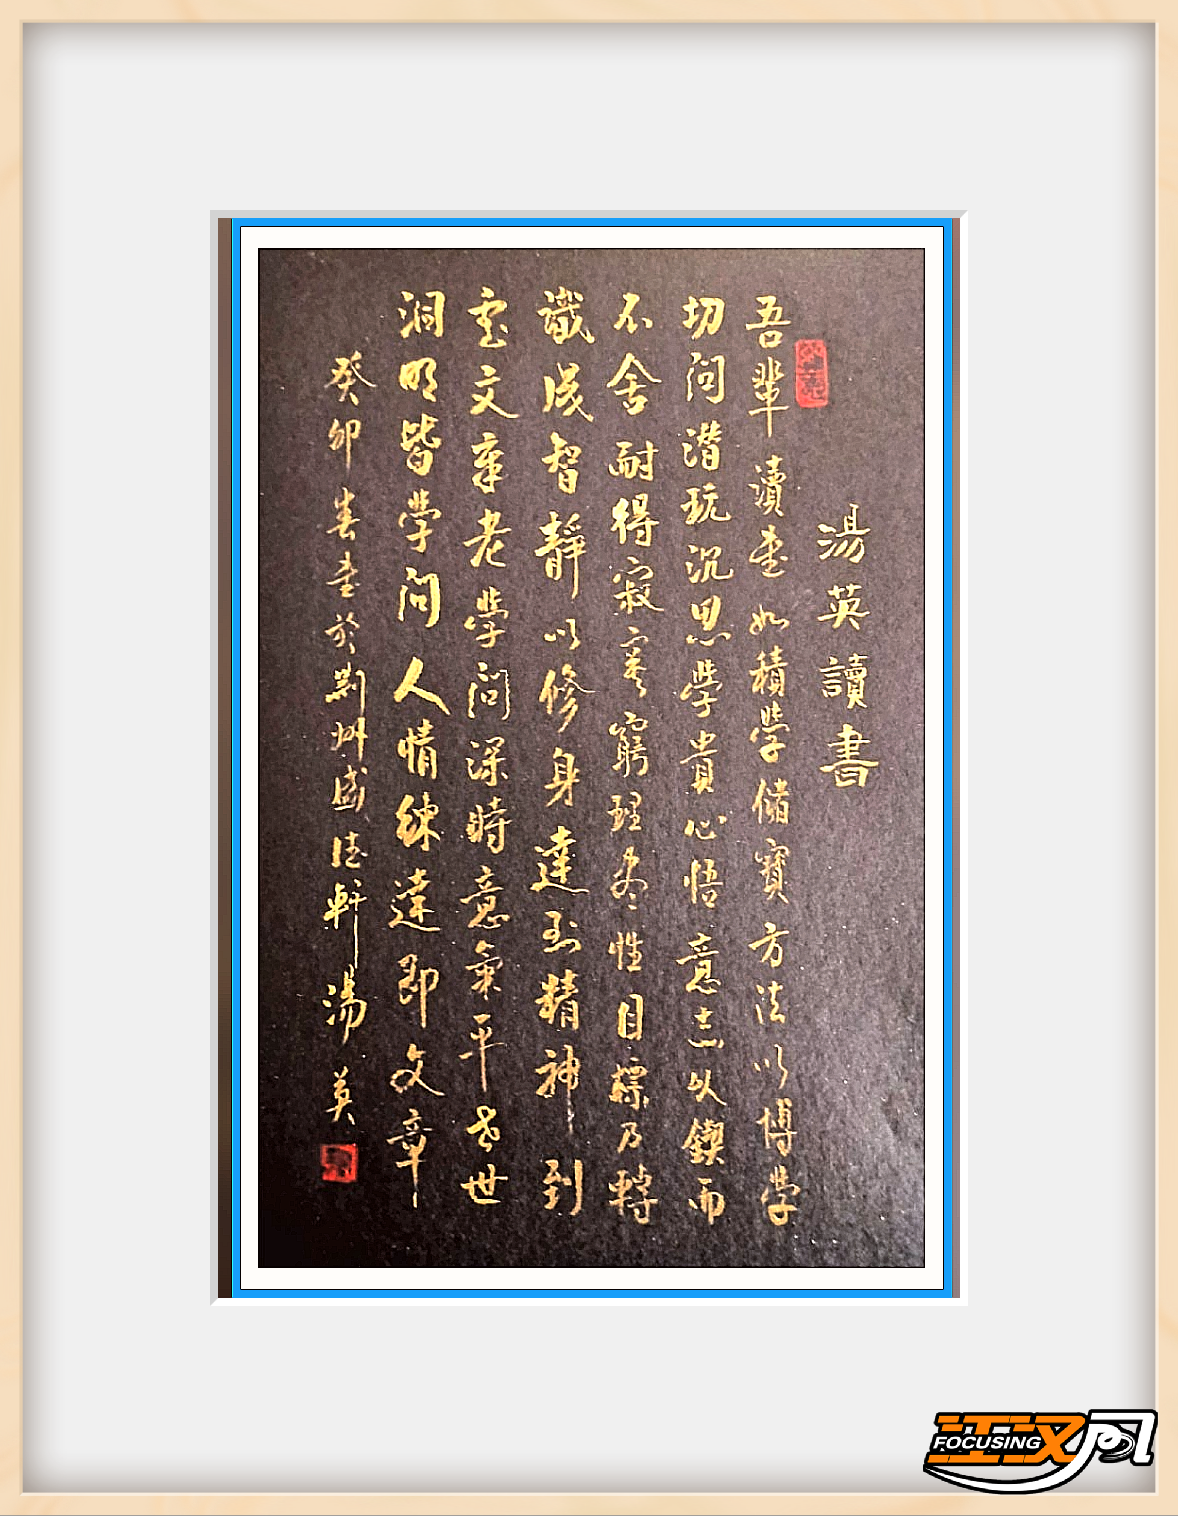 湯英讀書
吾輩讀書如積學儲寶方法以博學
切问潛玩沉思學貴心悟意志以鍥而
不舍耐得寂寞窮理尽性目標乃轉
識成智靜以修身達到精神到
處文章老學问深時意氣平世
洞明皆學问人情練達即文章
癸卯春書於荆州盛德軒湯英
江汉风
FOCUSING